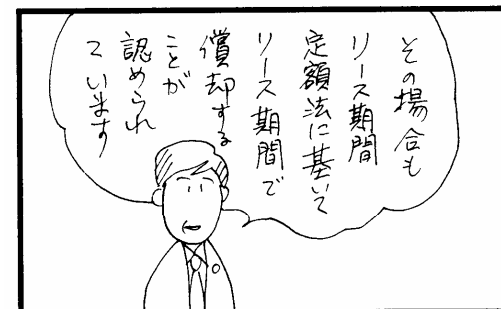 その場合も
リース期間
定額法に基いて
リース期間で
償却する
ことが
認められ
ています